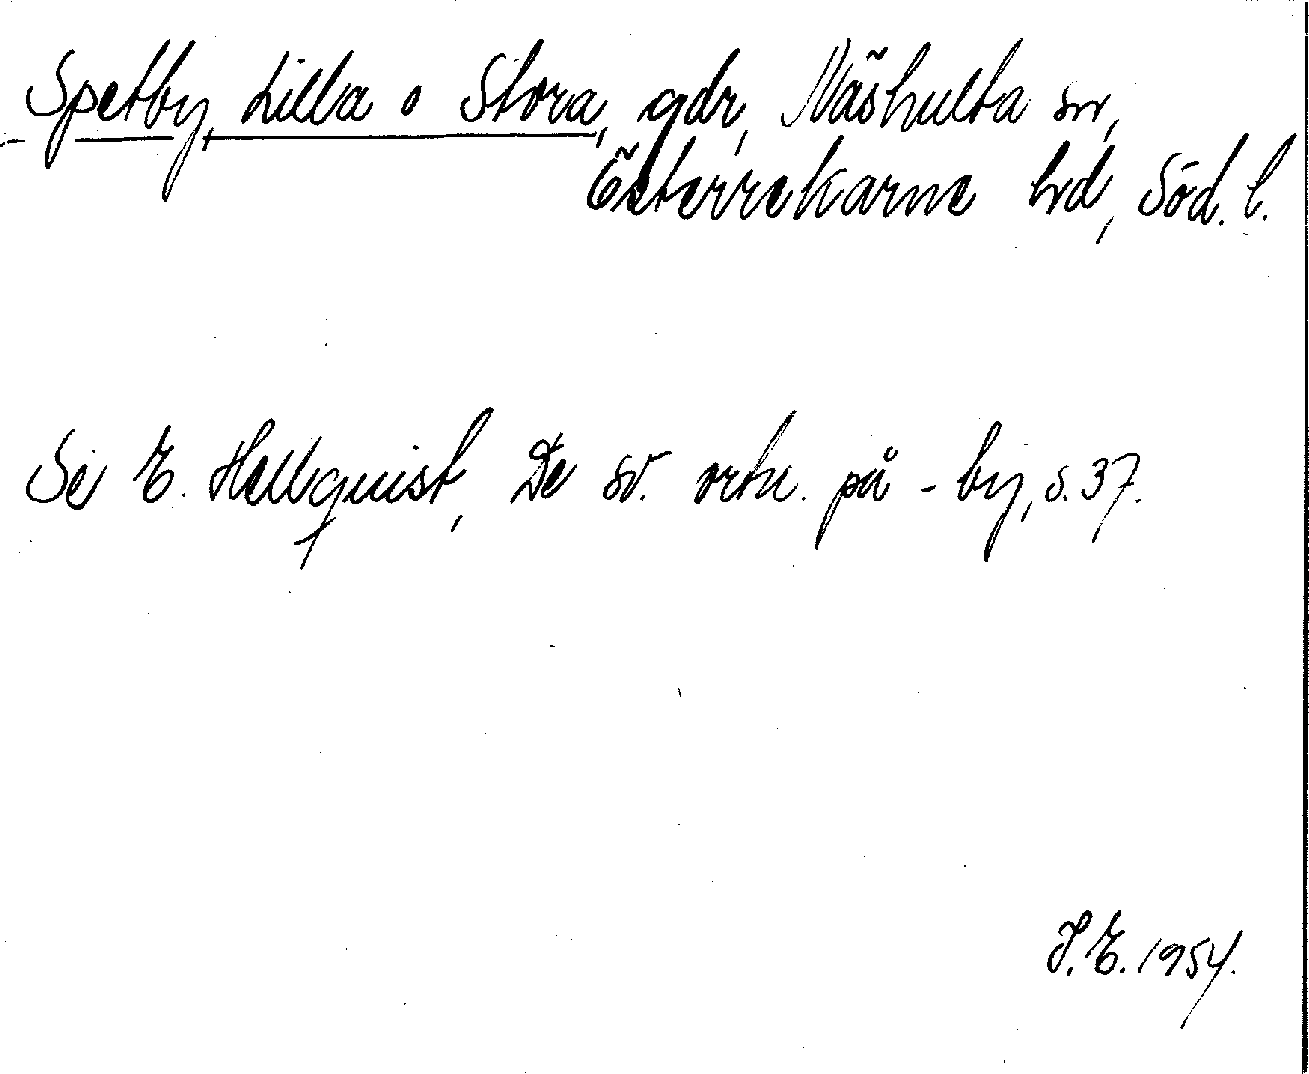 Spetby, Lilla o Stora, gdr, Näshulta sn,
Österrekarne hd, Söd. l.
Se E. Hellquist, De sv. ortn. på -by, s. 37.
J.E. 1954.